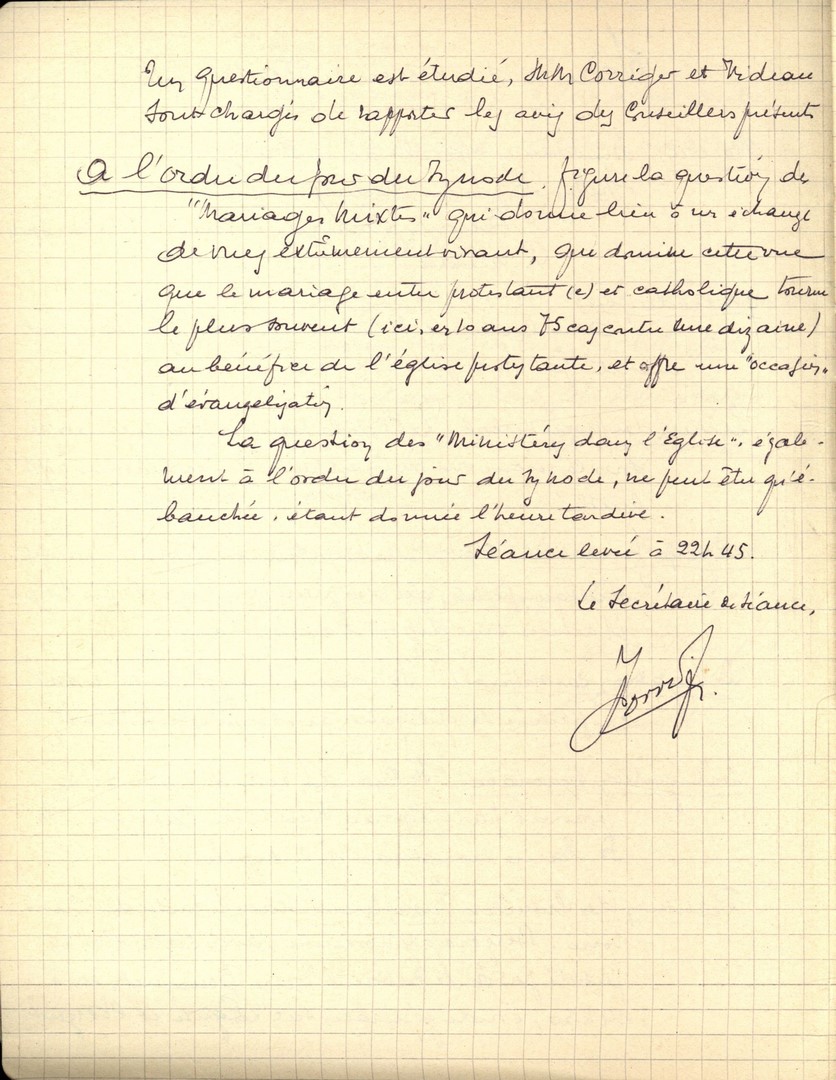 Un questionnaire est étudié, MM Corriger et Videau
sont chargés de rapporter les avis des Conseillers présents
A l'ordre du jour du Synode, figure la question des
"Mariages Mixtes" qui donne lieu à un échange
de vues extrêmement vivant, que domine cette vue
que le mariage entre protestant (e) et catholique tourne
le plus souvent (ici, en 10 ans 75 cas contre une dizaine)
au bénéfice de l'église protestante, et offre une "occasion"
d'évangélisation.
La question des "Ministères dans l'Eglise", égale-
ment à l'ordre du jour du Synode, ne peut être qu'é-
bauchée, étant donnée l'heure tardive.
Séance levée à 22h45.
Le Secrétaire de séance,